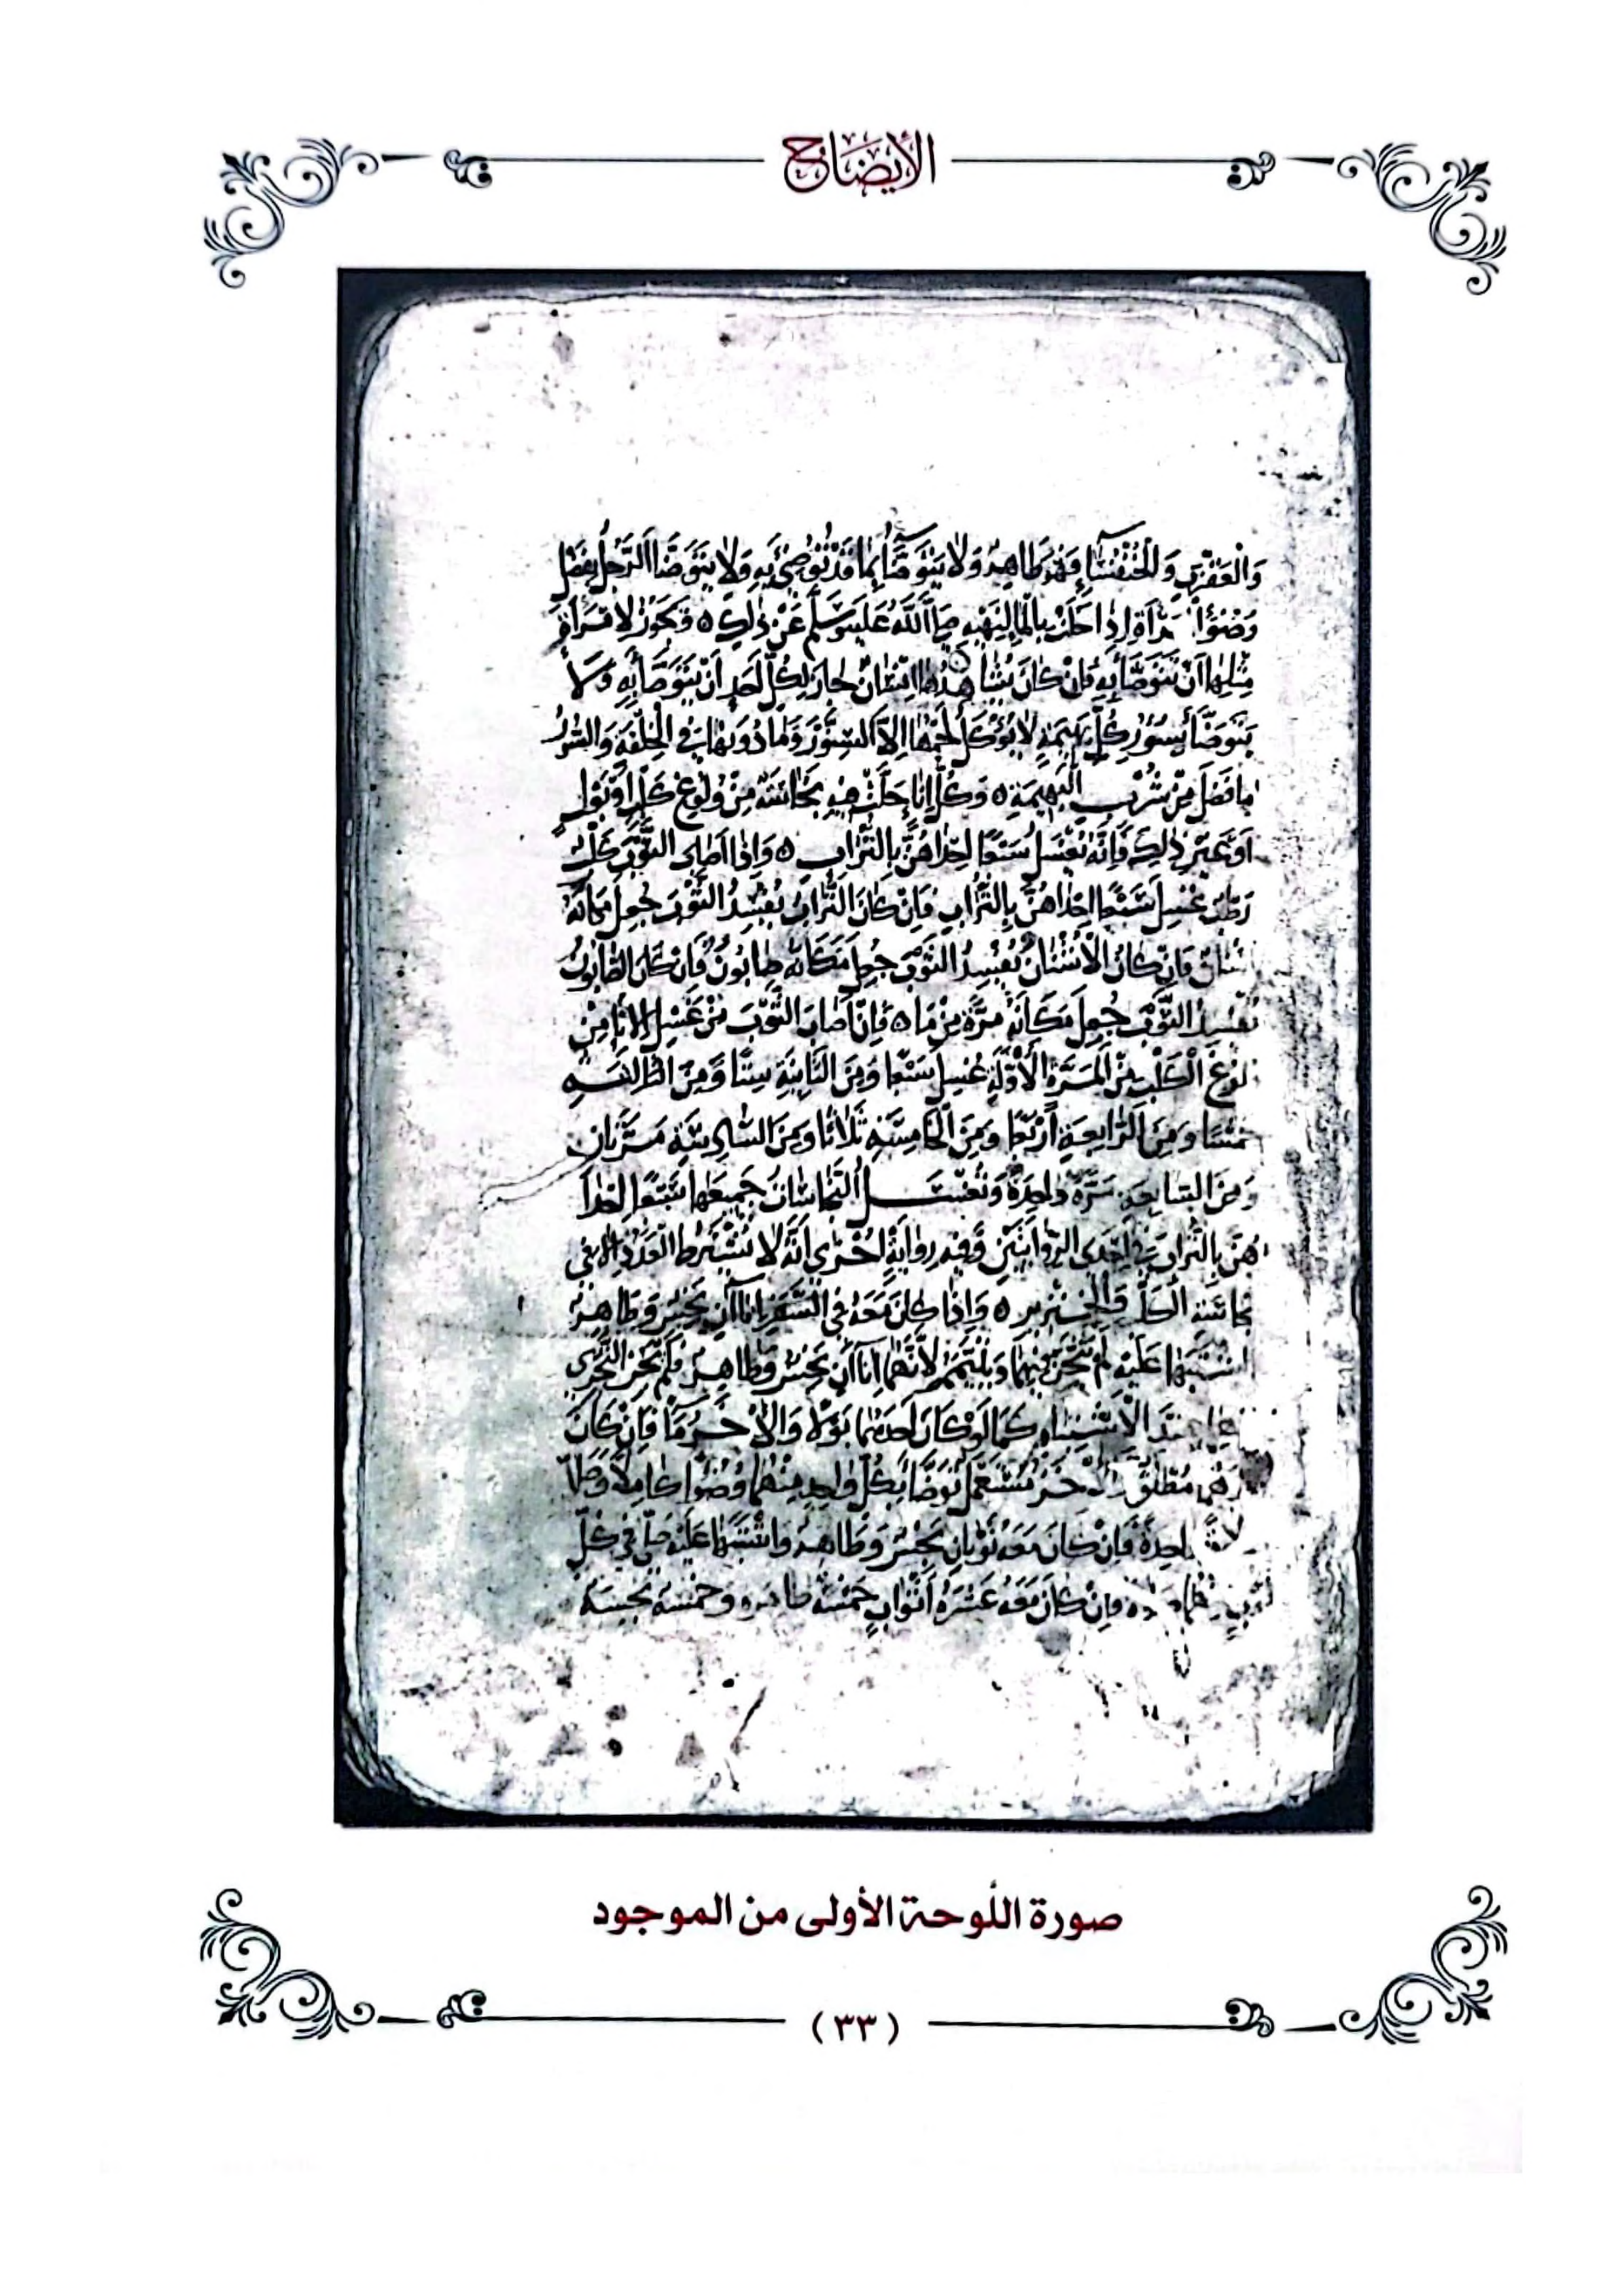 الإيضاح
والعقرب والخنفساء فهو طاهر ولا يتوضأ بما قد توضئ به ولا يتوضأ الرجل بفضل
وضوء مرأة إذا خلت بالماء لنهيه صلى الله عليه وسلم عن ذلك ه ويجوز لامرأة
مثلها أن تتوضأ به فإن كان يشاهدها إنسان جاز لكل أحد أن يتوضأ به ولا
يتوضأ بسؤر كل بهيمة لا يؤكل لحمها إلا السنور وما دونها في الخلقة والسؤر
ما فضل من شرب البهيمة ه وكل إناء حلت فيه نجاسة من ولوغ كلب أو بول
أو غير ذلك فإنه يغسل سبعا إحداهن بالتراب ه وإذا أصاب الثوب كلب
رطب غسل سبعا إحداهن بالتراب فإن كان التراب يفسد الثوب جعل مكانه
أشنان فإن كان الأشنان يفسد الثوب جعل مكانه صابون فإن كان الصابون
يفسد الثوب جعل مكانه مرة من ماء ه فإن أصاب الثوب من غسل الإناء من
ولوغ الكلب من المرة الأولة غسل سبعا ومن الثانية ستا ومن الثالثة
خمسا ومن الرابعة أربعا ومن الخامسة ثلاثا ومن السادسة مرتان
ومن السابعة مرة واحدة وتغسل النجاسات جميعها سبعا إحدا
هن بالتراب في إحدى الروايتين وفيه رواية أخرى أنه لا يشترط العدد إلا في
نجاسة الكلب والخنزير ه وإذا كان معه في السفر إناآن نجس وطاهر
اشتبها عليه لم يتحر فيهما ويتيمم لأنهما إناآن نجس وطاهر فلم يجز التحري
عند الاشتباه كما لو كان أحدهما بولا والآخر ماء فإن كان
مطلق والآخر مستعمل توضأ بكل واحد منهما وضوءا كاملا وصلى
صلاة واحدة فإن كان معه ثوبان نجس وطاهر واشتبها عليه صلى في كل
ثوب ه وإن كان معه عشرة أثواب خمسة طاهرة وخمسة نجسة
صورة اللوحة الأولى من الموجود
(٣٣)